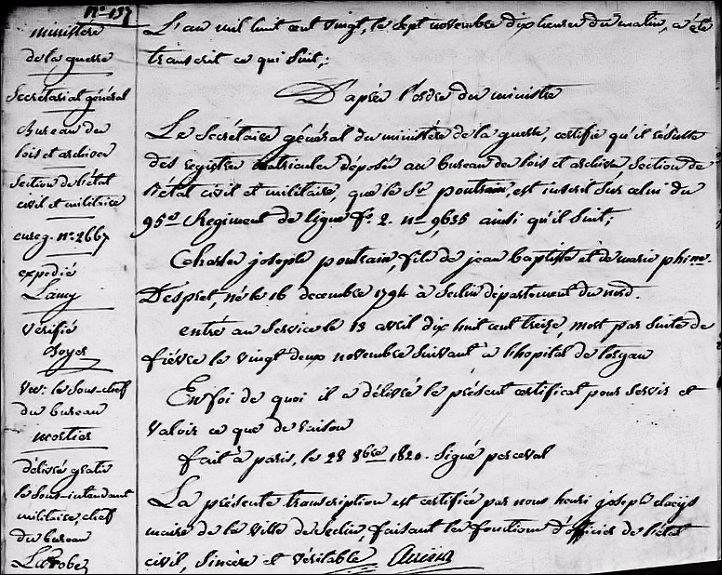 N° 137
ministère
de la guerre
Secrétariat général
Bureau des
lois et archives
Section de l'état
civil et militaire
enreg. n° 2667
expédié
Lamy
Vérifié
Boyer
Vu: le Sous-chef
du bureau
mortier
délivré gratis
le Sous-intendant
militaire, chef
du bureau
Larobe
L'an mil huit cent vingt, le sept novembre dix heures du matin, a été
transcrit ce qui suit;
D'après l'ordre du ministre
Le Secrétaire général du ministère de la guerre, certifie qu'il résulte
des registres matricules déposés au bureau des lois et archives, Section de
l'état civil et militaire, que le Sr. poutrain, est inscrit sur celui du
95e Regiment de ligne f°. 2. n° 9635 ainsi qu'il suit;
Charles joseph poutrain, fils de jean baptiste et de marie phi.me
Despret, né le 16 decembre 1794 à Seclin département du nord.
entré au service le 13 avril dix huit cent treize, mort par suite de
fièvre le vingt deux novembre suivant à l'hopital de
En foi de quoi il a délivré le présent certificat pour servir et
valoir ce que de raison
fait à paris, le 28 8bre 1820. Signé perceval
La présente transcription est certifiée par nous henri joseph
maire de la ville de Seclin, faisant les fonctions d'officier de l'état
civil, sincère et véritable